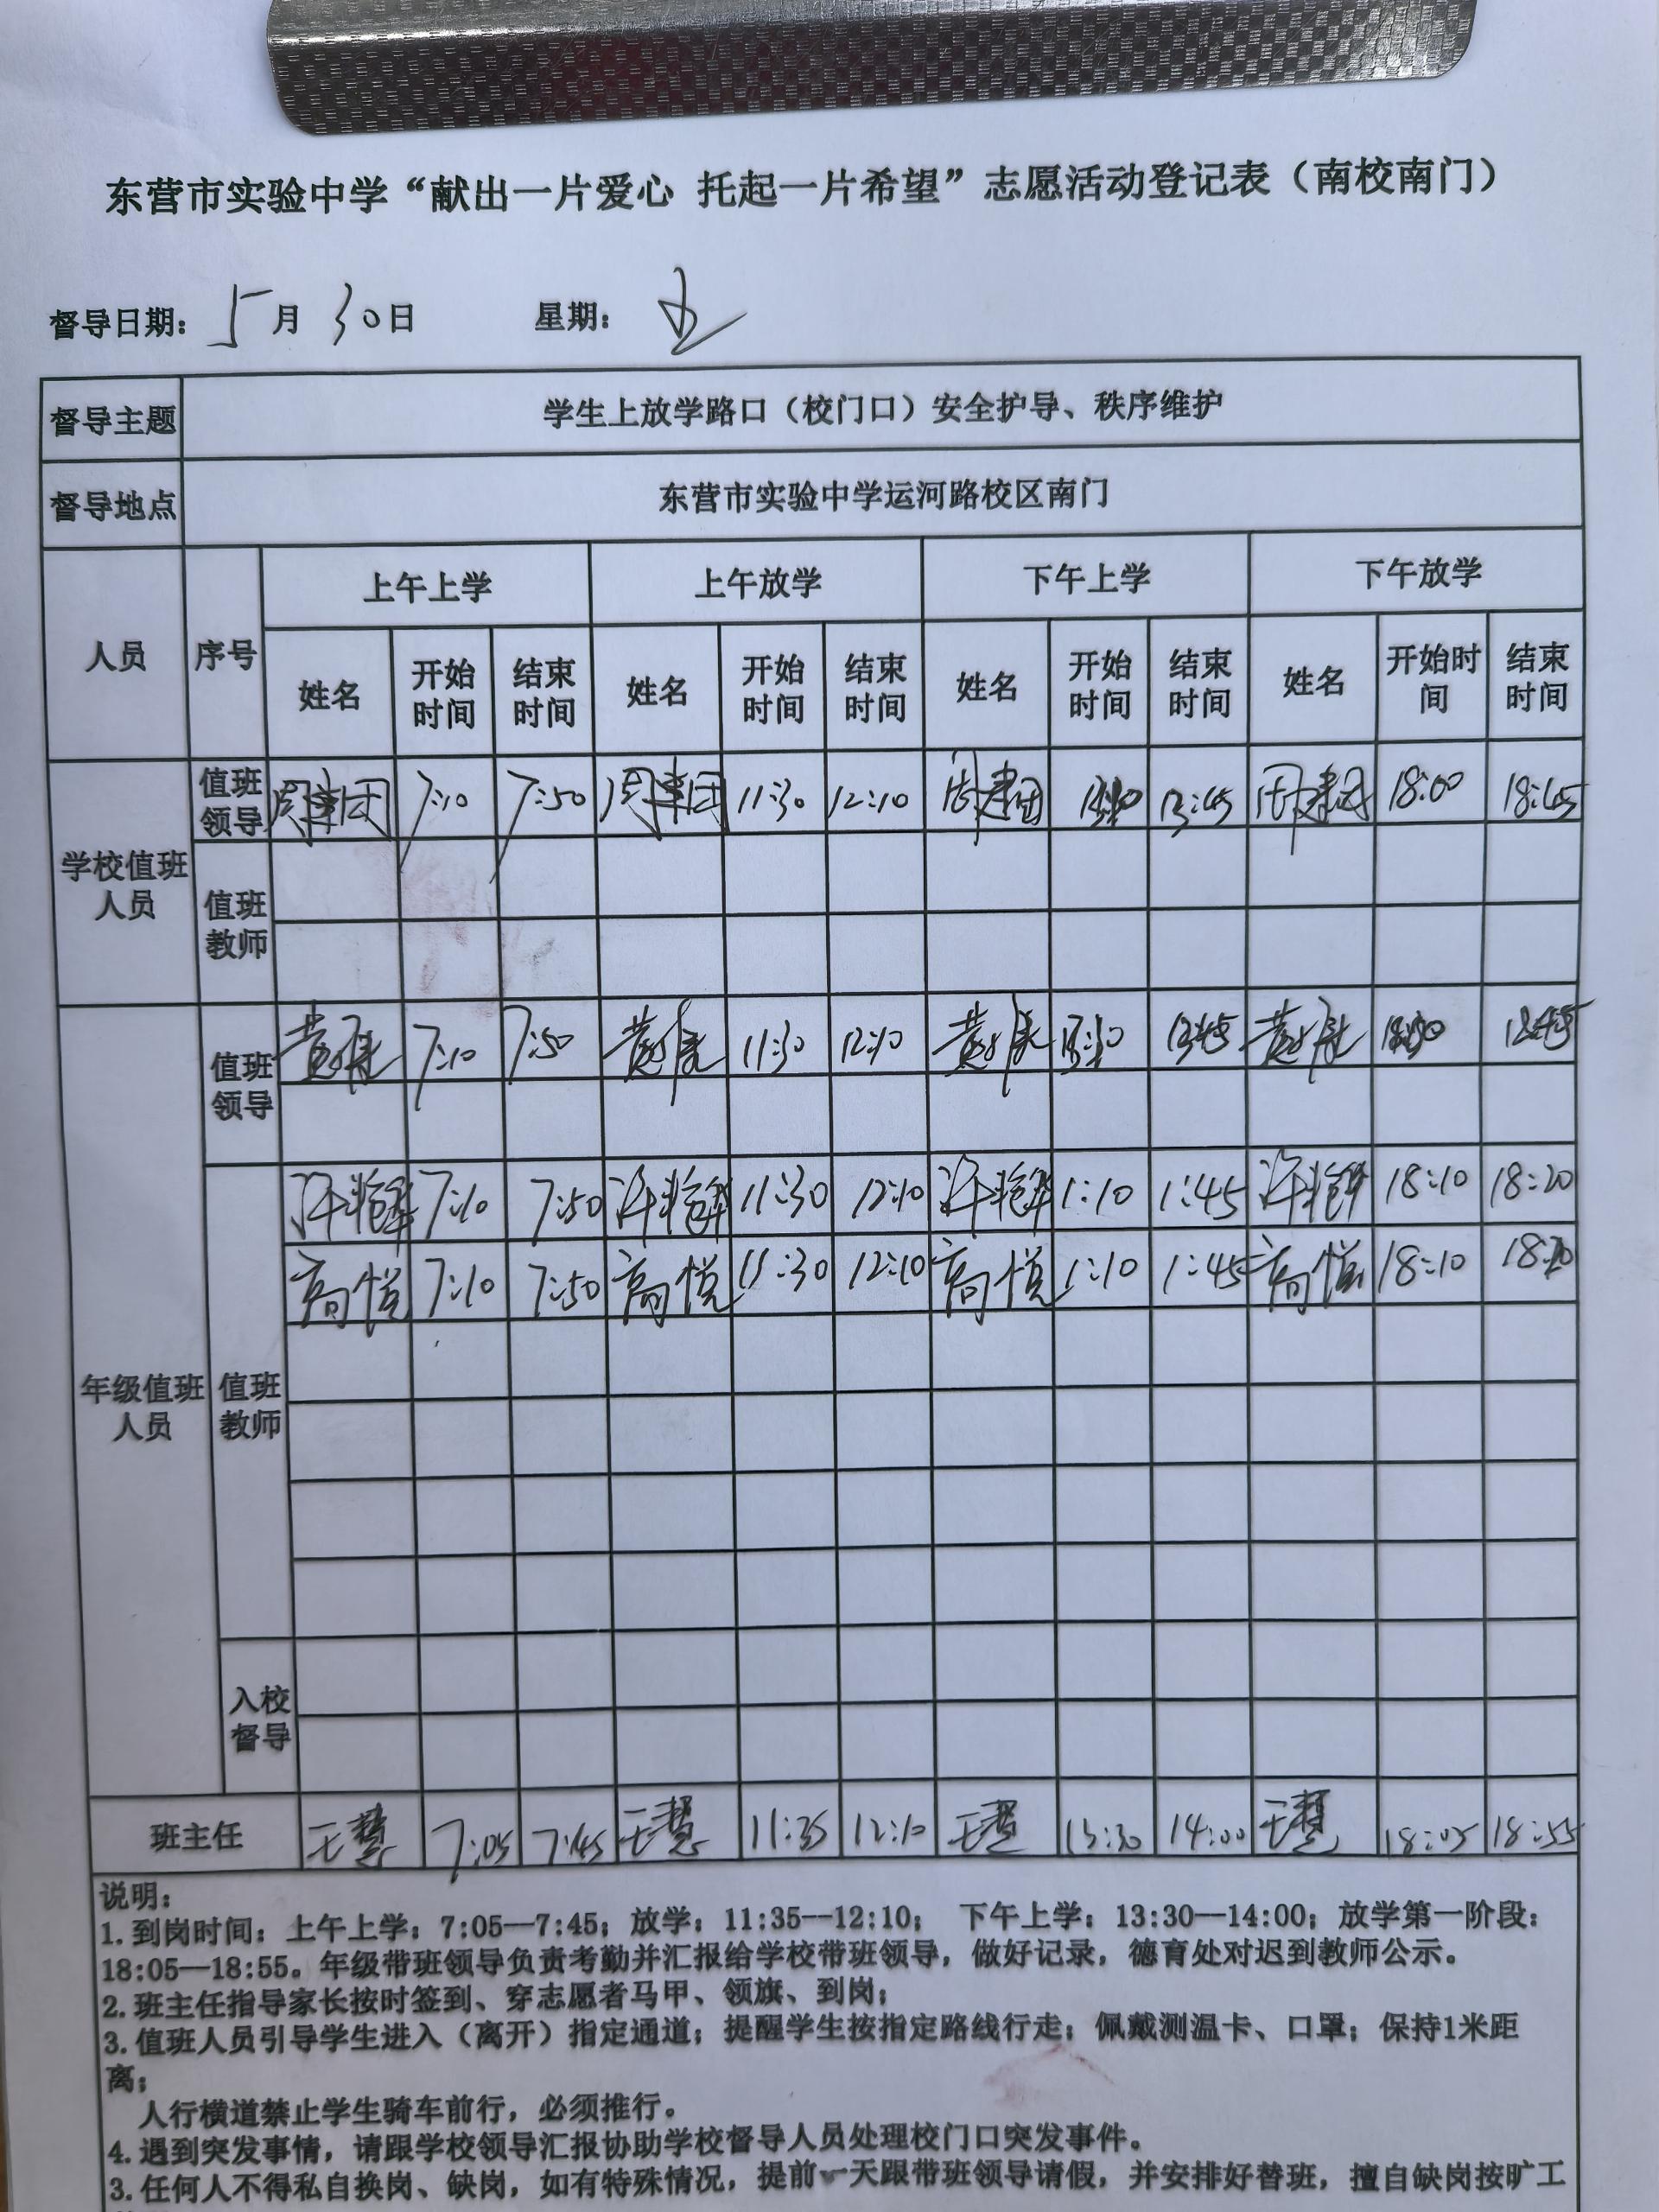 东营市实验中学“献出一片爱心 托起一片希望”志愿活动登记表（南校南门）
督导日期： 5月 30日 星期： 五
督导主题 学生上放学路口（校门口）安全护导、秩序维护
督导地点 东营市实验中学运河路校区南门
人员 序号 上午上学 上午放学 下午上学 下午放学
姓名 开始时间 结束时间 姓名 开始时间 结束时间 姓名 开始时间 结束时间 姓名 开始时间 结束时间
学校值班人员 值班领导 周建团 7:10 7:50 周建团 11:30 12:10 周建团 13:45 周建团 18:00 18:45
值班教师
年级值班人员 值班领导 7:10 7:50 11:30 12:10 13:10 13:45
值班教师 7:10 7:50 11:30 12:10 1:10 1:45 18:10 18:20
高悦 7:10 7:50 高悦 11:30 12:10 高悦 1:10 1:45 高悦 18:10 18:20
入校督导
班主任 王慧 7:05 7:45 王慧 11:35 12:10 王慧 13:30 14:00 王慧 18:05 18:55
说明：
1.到岗时间：上午上学：7:05—7:45；放学：11:35—12:10； 下午上学：13:30—14:00；放学第一阶段：
18:05—18:55。年级带班领导负责考勤并汇报给学校带班领导，做好记录，德育处对迟到教师公示。
2.班主任指导家长按时签到、穿志愿者马甲、领旗、到岗；
3.值班人员引导学生进入（离开）指定通道；提醒学生按指定路线行走；佩戴测温卡、口罩；保持1米距
离；
人行横道禁止学生骑车前行，必须推行。
4.遇到突发事情，请跟学校领导汇报协助学校督导人员处理校门口突发事件。
3.任何人不得私自换岗、缺岗，如有特殊情况，提前一天跟带班领导请假，并安排好替班，擅自缺岗按旷工